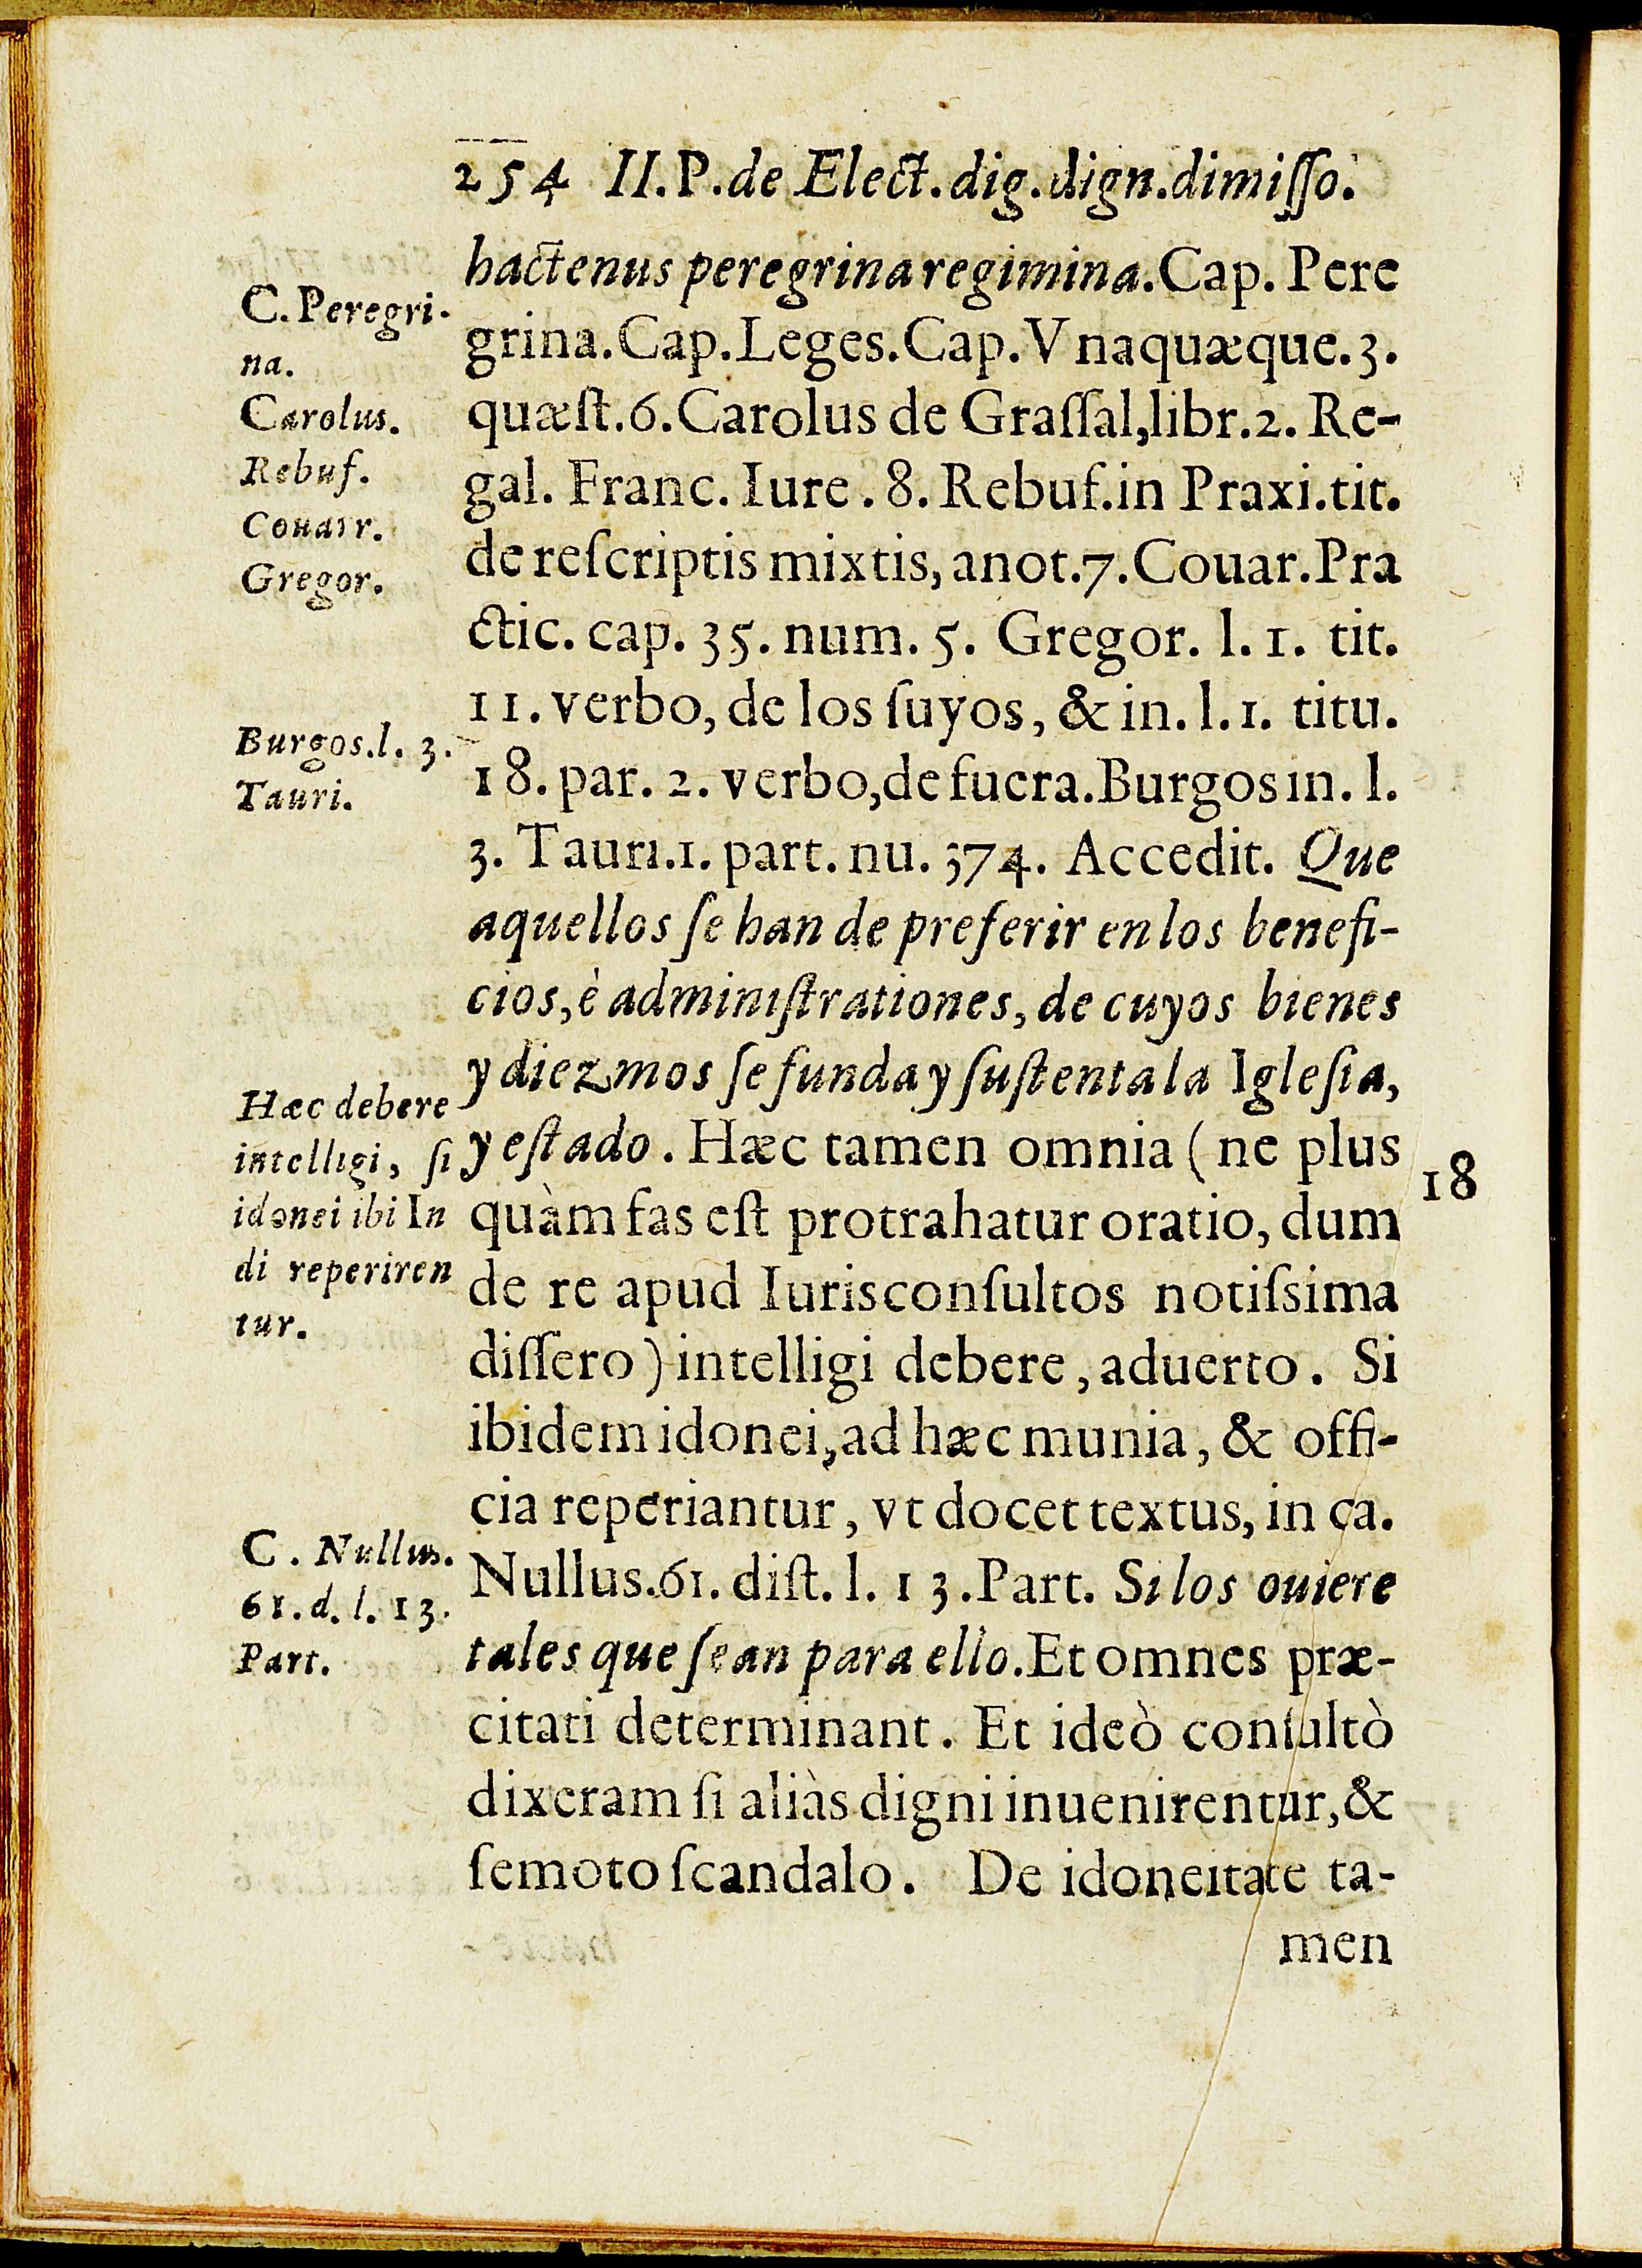 254 II.P.de Elect.dig.dign.dimiſſo.
hactenus peregrina regimina.Cap. Pere
grina.Cap.Leges.Cap.Vnaquæque.3.
quæſt.6.Carolus de Graſſal,libr.2. Re-
gal. Franc. Iure . 8. Rebuf.in Praxi.tit.
de reſcriptis mixtis, anot.7.Couar.Pra
ctic. cap. 35. num. 5. Gregor. l. 1. tit.
11. verbo, de los ſuyos, & in. l. 1. titu.
18. par. 2. verbo,de fuera.Burgos in. l.
3. Tauri.1. part. nu. 374. Accedit. Que
aquellos ſe han de preferir en los benefi-
cios, è adminiſtrationes, de cuyos bienes
y diezmos ſe funda y ſuſtenta la Igleſia,
y eſtado . Hæc tamen omnia ( ne plus
quàm fas eſt protrahatur oratio, dum
de re apud Iurisconſultos notiſsima
diſſero ) intelligi debere , aduerto . Si
ibidem idonei, ad hæc munia , & offi-
cia reperiantur , vt docet textus, in ca.
Nullus.61. diſt. l. 13.Part. Si los ouiere
tales que ſean para ello.Et omnes præ-
citati determinant . Et ideò conſultò
dixeram ſi aliàs digni inuenirentur, &
ſemoto ſcandalo . De idoneitate ta-
men
C. Peregri-
na.
Carolus.
Rebuf.
Couarr.
Gregor.
Burgos.l. 3.
Tauri.
Hæc debere
intelligi, ſi
idonei ibi In
di reperiren
tur.
C . Nullus.
61. d. l. 13.
Part.
18